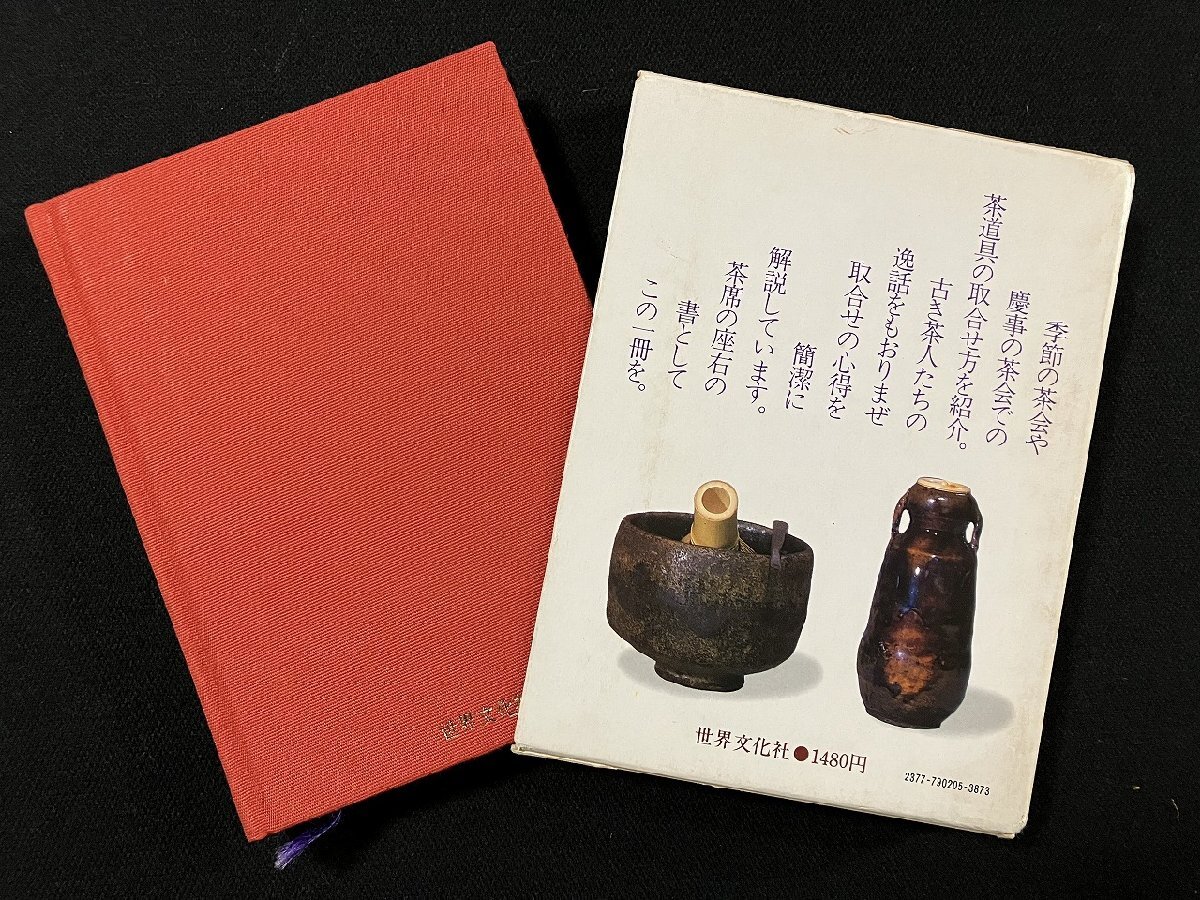 季節の茶会や
慶事の茶会での
茶道具の取合せ方を紹介。
古き茶人たちの
逸話をもおりまぜ
取合せの心得を
簡潔に
解説しています。
茶席の座右の
書として
この一冊を。
世界文化社●1480円
2377-790205-3873
世界文化